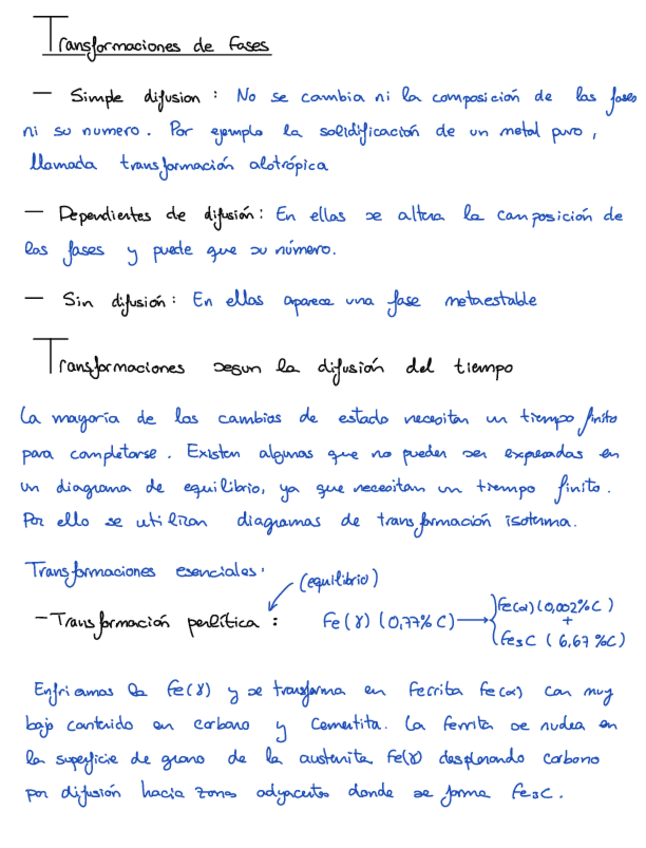 Transformaciones de fases
— Simple difusion : No se cambia ni la composición de las fases
ni su numero. Por ejemplo la solidificación de un metal puro,
llamada transformación alotrópica
— Dependientes de difusión: En ellas se altera la composición de
las fases y puede que su número.
— Sin difusión: En ellas aparece una fase metaestable
Transformaciones segun la difusión del tiempo
La mayoría de los cambios de estado necesitan un tiempo finito
para completarse. Existen algunas que no pueden ser expresadas en
un diagrama de equilibrio, ya que necesitan un tiempo finito.
Por ello se utilizan diagramas de transformación isoterma.
Transformaciones esenciales:
(equilibrio)
- Transformación perlítica : Fe(γ) (0,77% C) → { Fe(α) (0,002% C) + Fe3C (6,67 %C)
Enfriamos la Fe(γ) y se transforma en Ferrita Fe(α) con muy
bajo contenido en carbono y Cementita. La ferrita se nuclea en
la superficie de grano de la austenita Fe(γ) desplazando carbono
por difusión hacia zonas adyacentes donde se forma Fe3C.